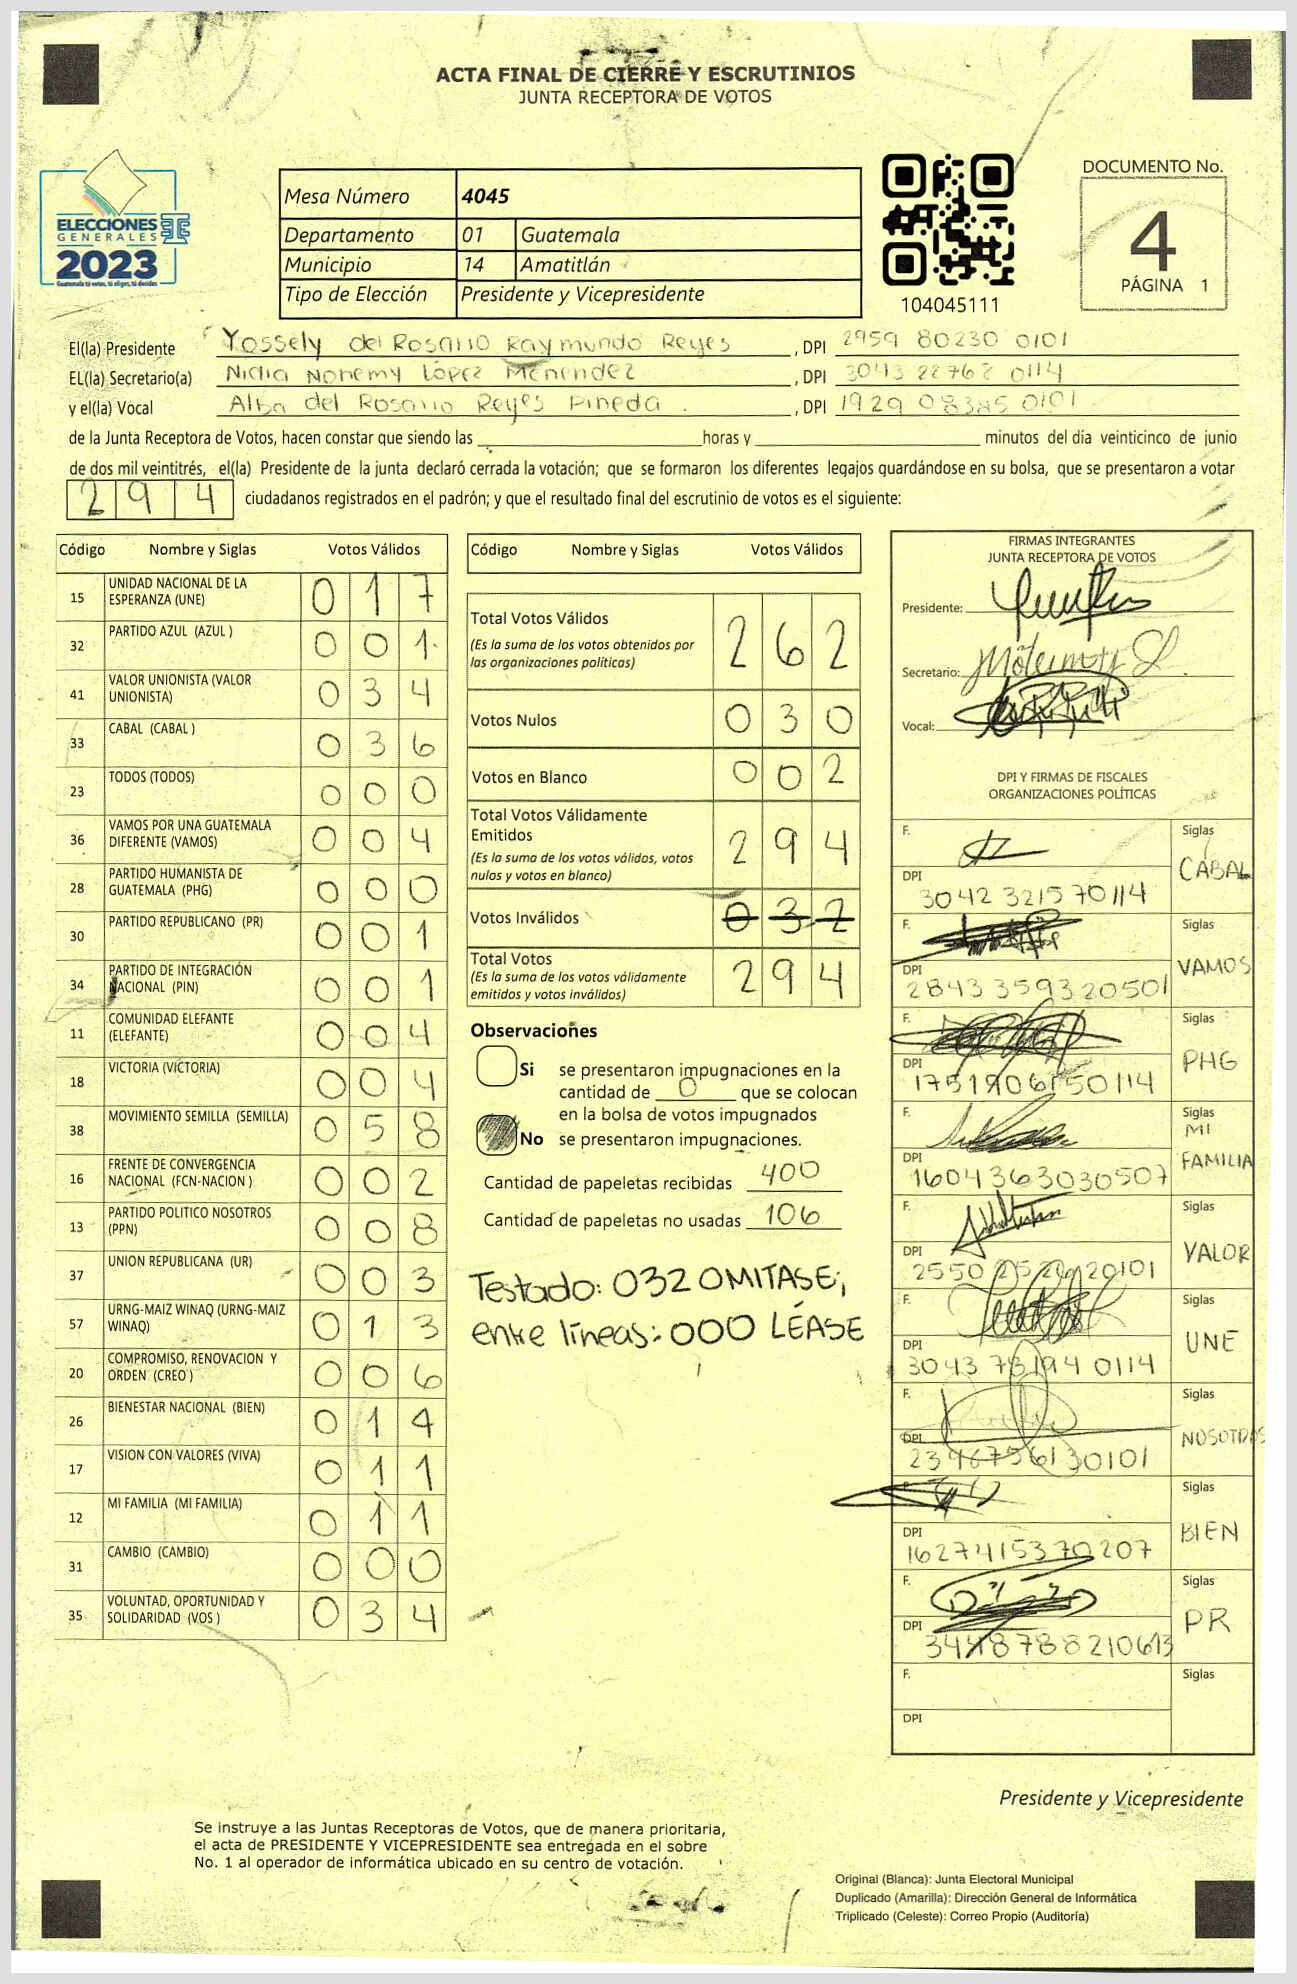 ACTA FINAL DE CIERRE Y ESCRUTINIOS
JUNTA RECEPTORA DE VOTOS
ELECCIONES
GENERALES
2023
Guatemala tú votas, tú eliges, tú decides
Mesa Número 4045
Departamento 01 Guatemala
Municipio 14 Amatitlán
Tipo de Elección Presidente y Vicepresidente
104045111
DOCUMENTO No.
4
PÁGINA 1
El(la) Presidente Yossely del Rosario Raymundo Reyes , DPI 2959 80230 0101
EL(la) Secretario(a) Nidia Nohemy López Menendez , DPI 3043 22762 0114
y el(la) Vocal Alba del Rosario Reyes Pineda . , DPI 1929 08385 0101
de la Junta Receptora de Votos, hacen constar que siendo las horas y minutos del día veinticinco de junio
de dos mil veintitrés, el(la) Presidente de la junta declaró cerrada la votación; que se formaron los diferentes legajos guardándose en su bolsa, que se presentaron a votar
294 ciudadanos registrados en el padrón; y que el resultado final del escrutinio de votos es el siguiente:
Código Nombre y Siglas Votos Válidos
15 UNIDAD NACIONAL DE LA ESPERANZA (UNE) 017
32 PARTIDO AZUL (AZUL ) 001
41 VALOR UNIONISTA (VALOR UNIONISTA) 034
33 CABAL (CABAL ) 036
23 TODOS (TODOS) 000
36 VAMOS POR UNA GUATEMALA DIFERENTE (VAMOS) 004
28 PARTIDO HUMANISTA DE GUATEMALA (PHG) 000
30 PARTIDO REPUBLICANO (PR) 001
34 PARTIDO DE INTEGRACIÓN NACIONAL (PIN) 001
11 COMUNIDAD ELEFANTE (ELEFANTE) 004
18 VICTORIA (VICTORIA) 004
38 MOVIMIENTO SEMILLA (SEMILLA) 058
16 FRENTE DE CONVERGENCIA NACIONAL (FCN-NACION ) 002
13 PARTIDO POLITICO NOSOTROS (PPN) 008
37 UNION REPUBLICANA (UR) 003
57 URNG-MAIZ WINAQ (URNG-MAIZ WINAQ) 013
20 COMPROMISO, RENOVACION Y ORDEN (CREO ) 006
26 BIENESTAR NACIONAL (BIEN) 014
17 VISION CON VALORES (VIVA) 011
12 MI FAMILIA (MI FAMILIA) 011
31 CAMBIO (CAMBIO) 000
35 VOLUNTAD, OPORTUNIDAD Y SOLIDARIDAD (VOS ) 034
Código Nombre y Siglas Votos Válidos
Total Votos Válidos 262
(Es la suma de los votos obtenidos por
las organizaciones políticas)
Votos Nulos 030
Votos en Blanco 002
Total Votos Válidamente
Emitidos 294
(Es la suma de los votos válidos, votos
nulos y votos en blanco)
Votos Inválidos 032
Total Votos 294
(Es la suma de los votos válidamente
emitidos y votos inválidos)
Observaciones
Si se presentaron impugnaciones en la
cantidad de 0 que se colocan
en la bolsa de votos impugnados
No se presentaron impugnaciones.
Cantidad de papeletas recibidas 400
Cantidad de papeletas no usadas 106
Testado: 032 OMITASE;
entre líneas: 000 LÉASE
FIRMAS INTEGRANTES
JUNTA RECEPTORA DE VOTOS
Presidente:
Secretario:
Vocal:
DPI Y FIRMAS DE FISCALES
ORGANIZACIONES POLÍTICAS
F. Siglas
CABAL
DPI 3042 32157 0114
F. Siglas
VAMOS
DPI 28433 5932 0501
F. Siglas
PHG
DPI 1751906150114
F. Siglas
MI FAMILIA
DPI 1604363030507
F. Siglas
VALOR
DPI
F. Siglas
UNE
DPI 3043 78194 0114
F. Siglas
NOSOTROS
DPI
F. Siglas
BIEN
DPI 1627415370207
F. Siglas
PR
DPI 3448788210613
F. Siglas
DPI
Presidente y Vicepresidente
Se instruye a las Juntas Receptoras de Votos, que de manera prioritaria,
el acta de PRESIDENTE Y VICEPRESIDENTE sea entregada en el sobre
No. 1 al operador de informática ubicado en su centro de votación.
Original (Blanca): Junta Electoral Municipal
Duplicado (Amarilla): Dirección General de Informática
Triplicado (Celeste): Correo Propio (Auditoría)